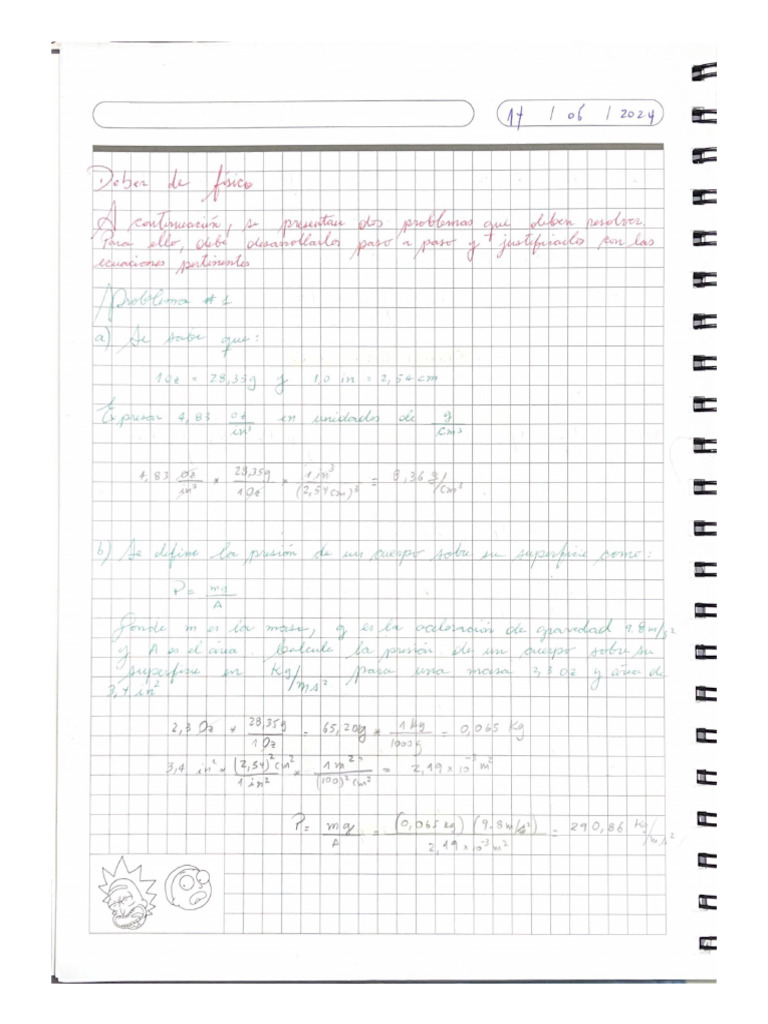 17 / 06 / 2024
Deber de físico
A continuación, se presentan dos problemas que deben resolver.
Para ello, debe desarrollarlos paso a paso y justificarlos con las
ecuaciones pertinentes
Problema #1
a) Se sabe que:
1 Oz = 28,35g y 1,0 in = 2,54 cm
Expresar 4,83 Oz/in³ en unidades de g/cm³
4,83 Oz/in³ * 28,35g/1 Oz * 1 in³/(2,54 cm)³ = 8,36 g/cm³
b) Se define la presión de un cuerpo sobre su superficie como:
P = mg/A
Donde m es la masa, g es la aceleración de gravedad 9.8 m/s²
y A es el área. Calcule la presión de un cuerpo sobre su
superficie en Kg/ms² para una masa 2,3 oz y área de
3,4 in²
2,3 Oz * 28,35g/1 Oz = 65,20g * 1 Kg/1000g = 0,065 Kg
3,4 in² * (2,54)² cm²/1 in² * 1 m²/(100)² cm² = 2,19 × 10⁻³ m²
P = mg/A = (0,065 kg) (9.8 m/s²)/2,19 × 10⁻³ m² = 290,86 Kg/ms²